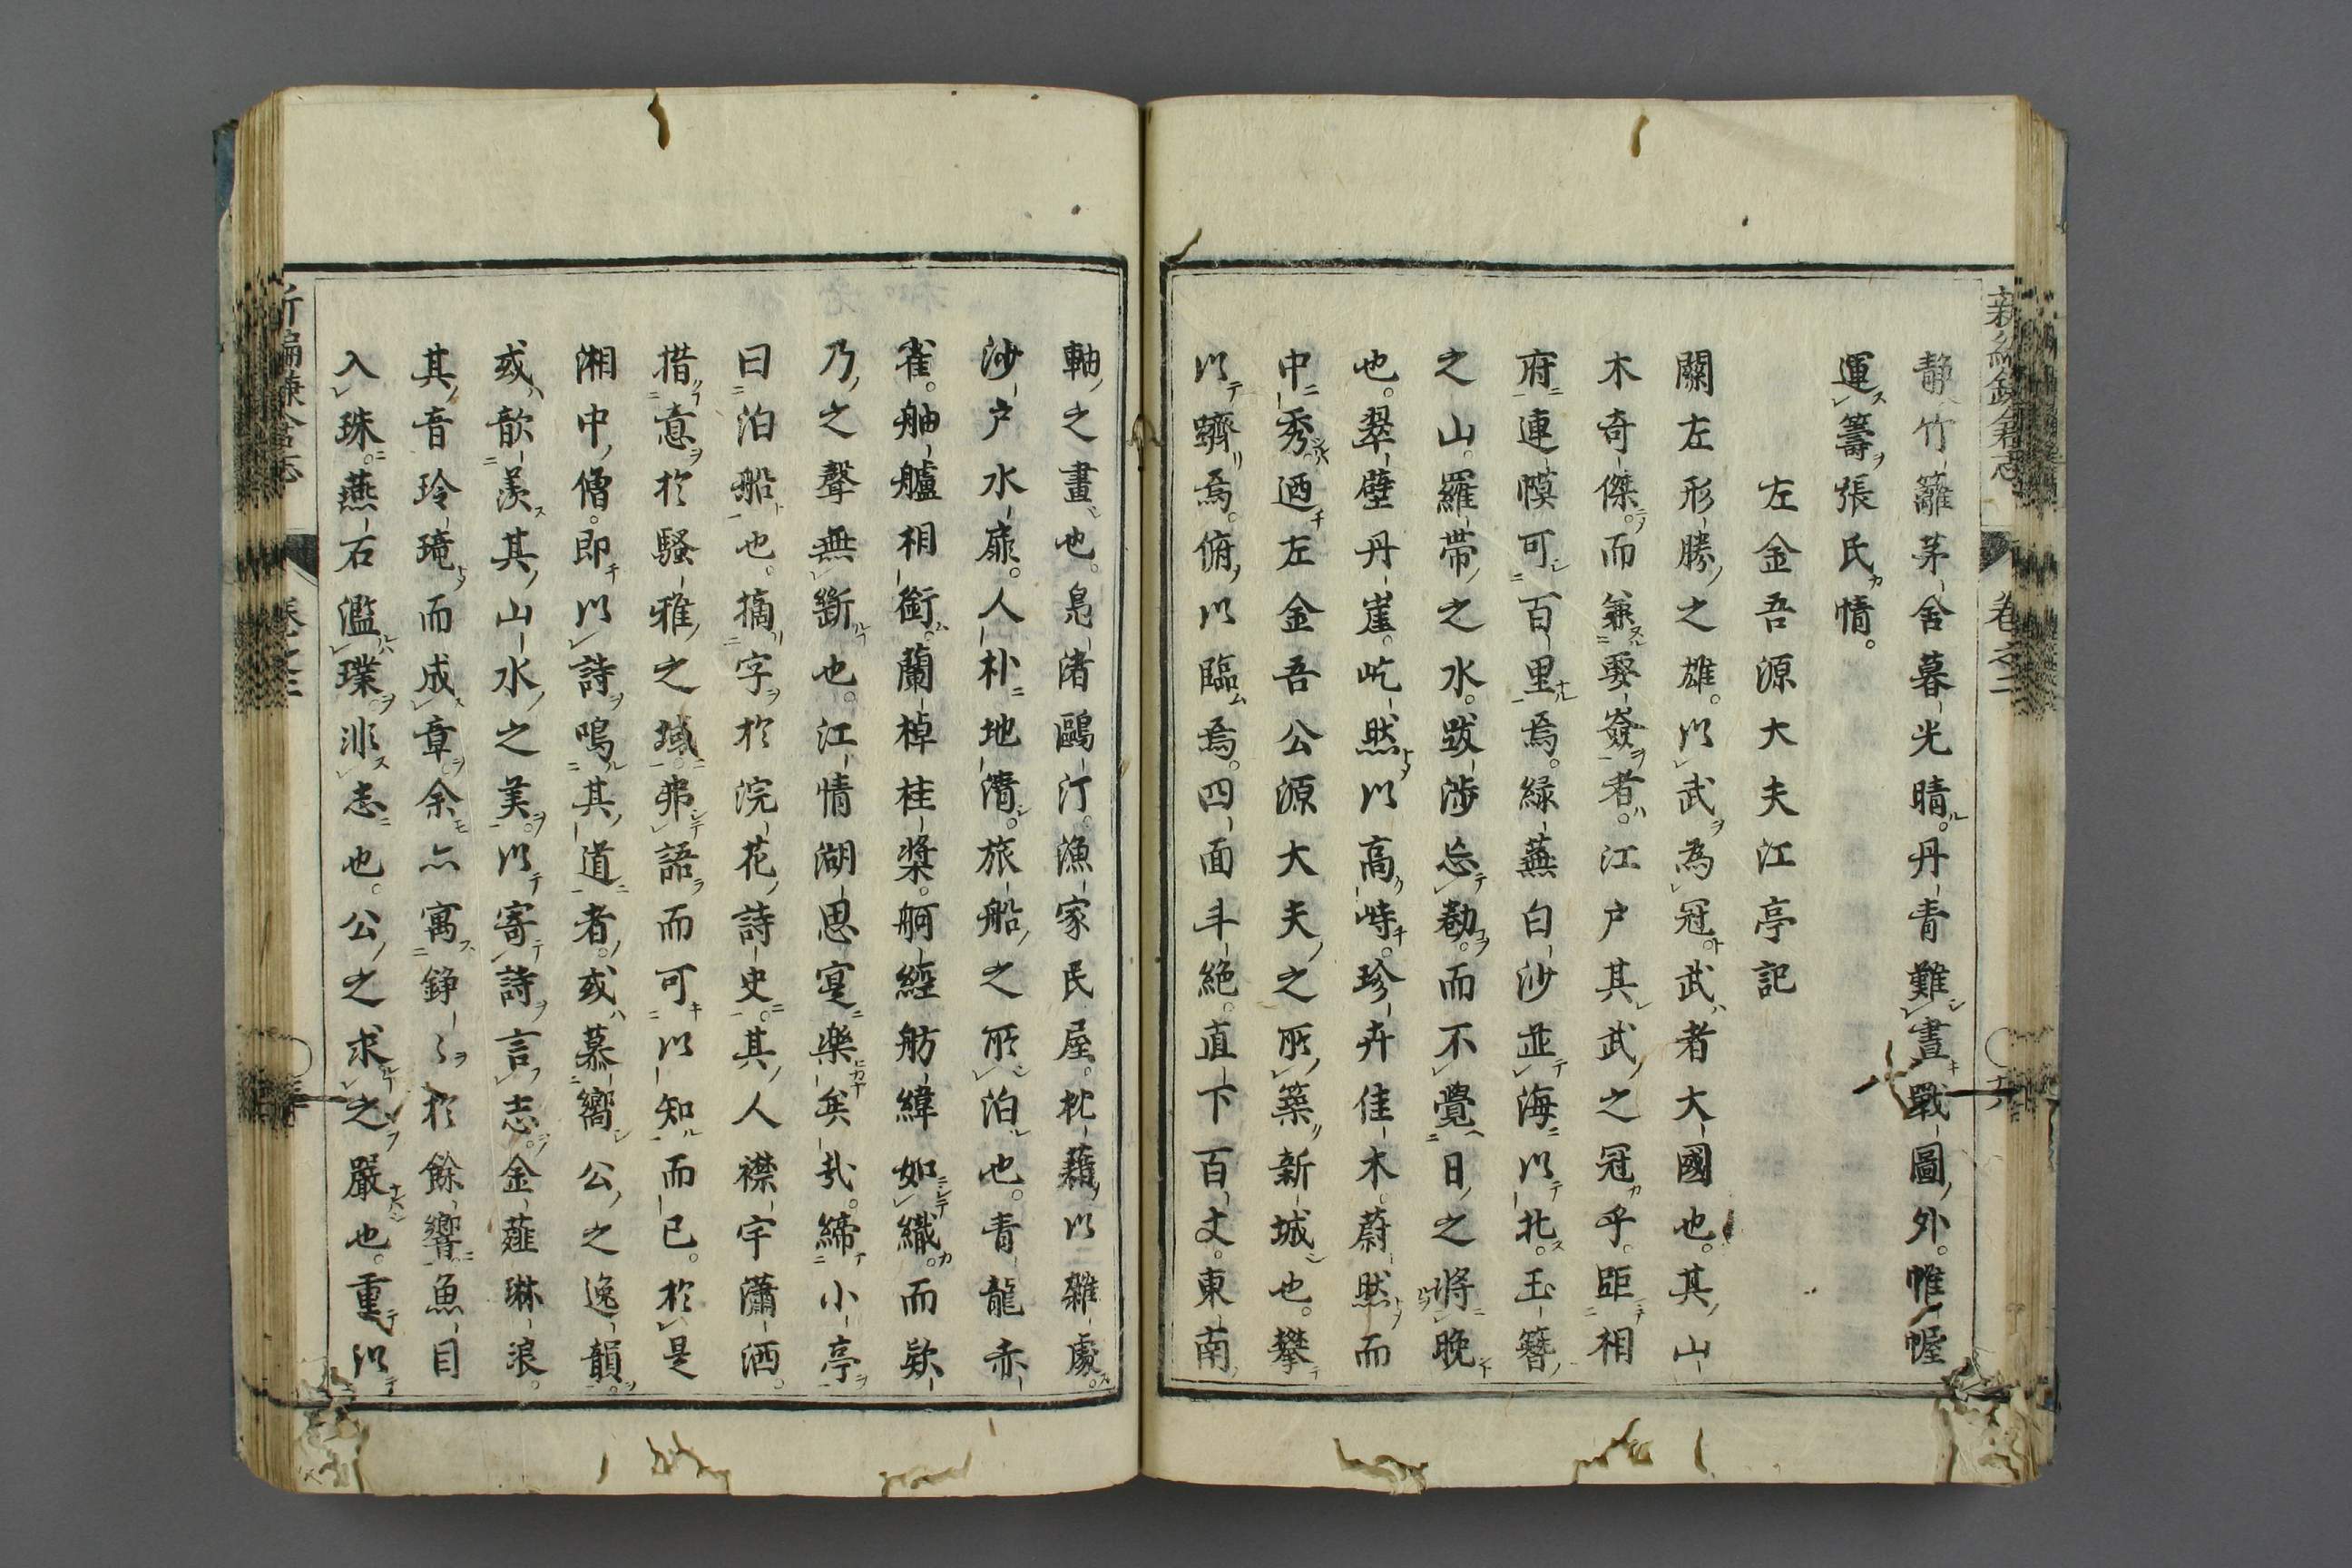 静竹籬茅舎暮光晴。丹青難畫戰圖外。惟幄
運籌張氏情。
左金吾源大夫江亭記
關左形勝之雄。以武為冠。武者大國也。其山
木奇傑。而兼娶簽者。江戸其武之冠乎。距相
府連幙可百里焉。緑蕪白沙並海以北。玉簪
之山。羅帯之水。跋渉忘勌。而不覺日之將晩
也。翠壁丹崖。屹然以高峙。珍卉佳木蔚然而
中秀。廼左金吾公源大夫之所築新城也。攀
以躋焉。俯以臨焉。四面斗絶。直下百丈。東南
軸之畫也。鳧渚鷗汀。漁家民屋。枕藉以雜處。
沙戸水扉。人朴地濟。旅船之所泊也。青龍赤
雀。舳艫相銜。蘭棹桂槳。舸經舫緯如織。而欵
乃之聲無斷也。江情湖思寔樂矣哉。締小亭
曰泊船也。摘字於浣花詩史。其人襟宇瀟洒。
措意於騷雅之域。弗語而可以知而已。於是
湘中僧。即以詩鳴其道者。或慕嚮公之逸韻。
或歆羨其山水之美。以寄詩言志。金薤琳浪。
其音玲琦而成章。余亦寓錚〻於餘響。魚目
入珠。燕石濫璞。非志也。公之求之嚴也。重以
新編鎌倉志
卷之二
新編鎌倉志
卷之三